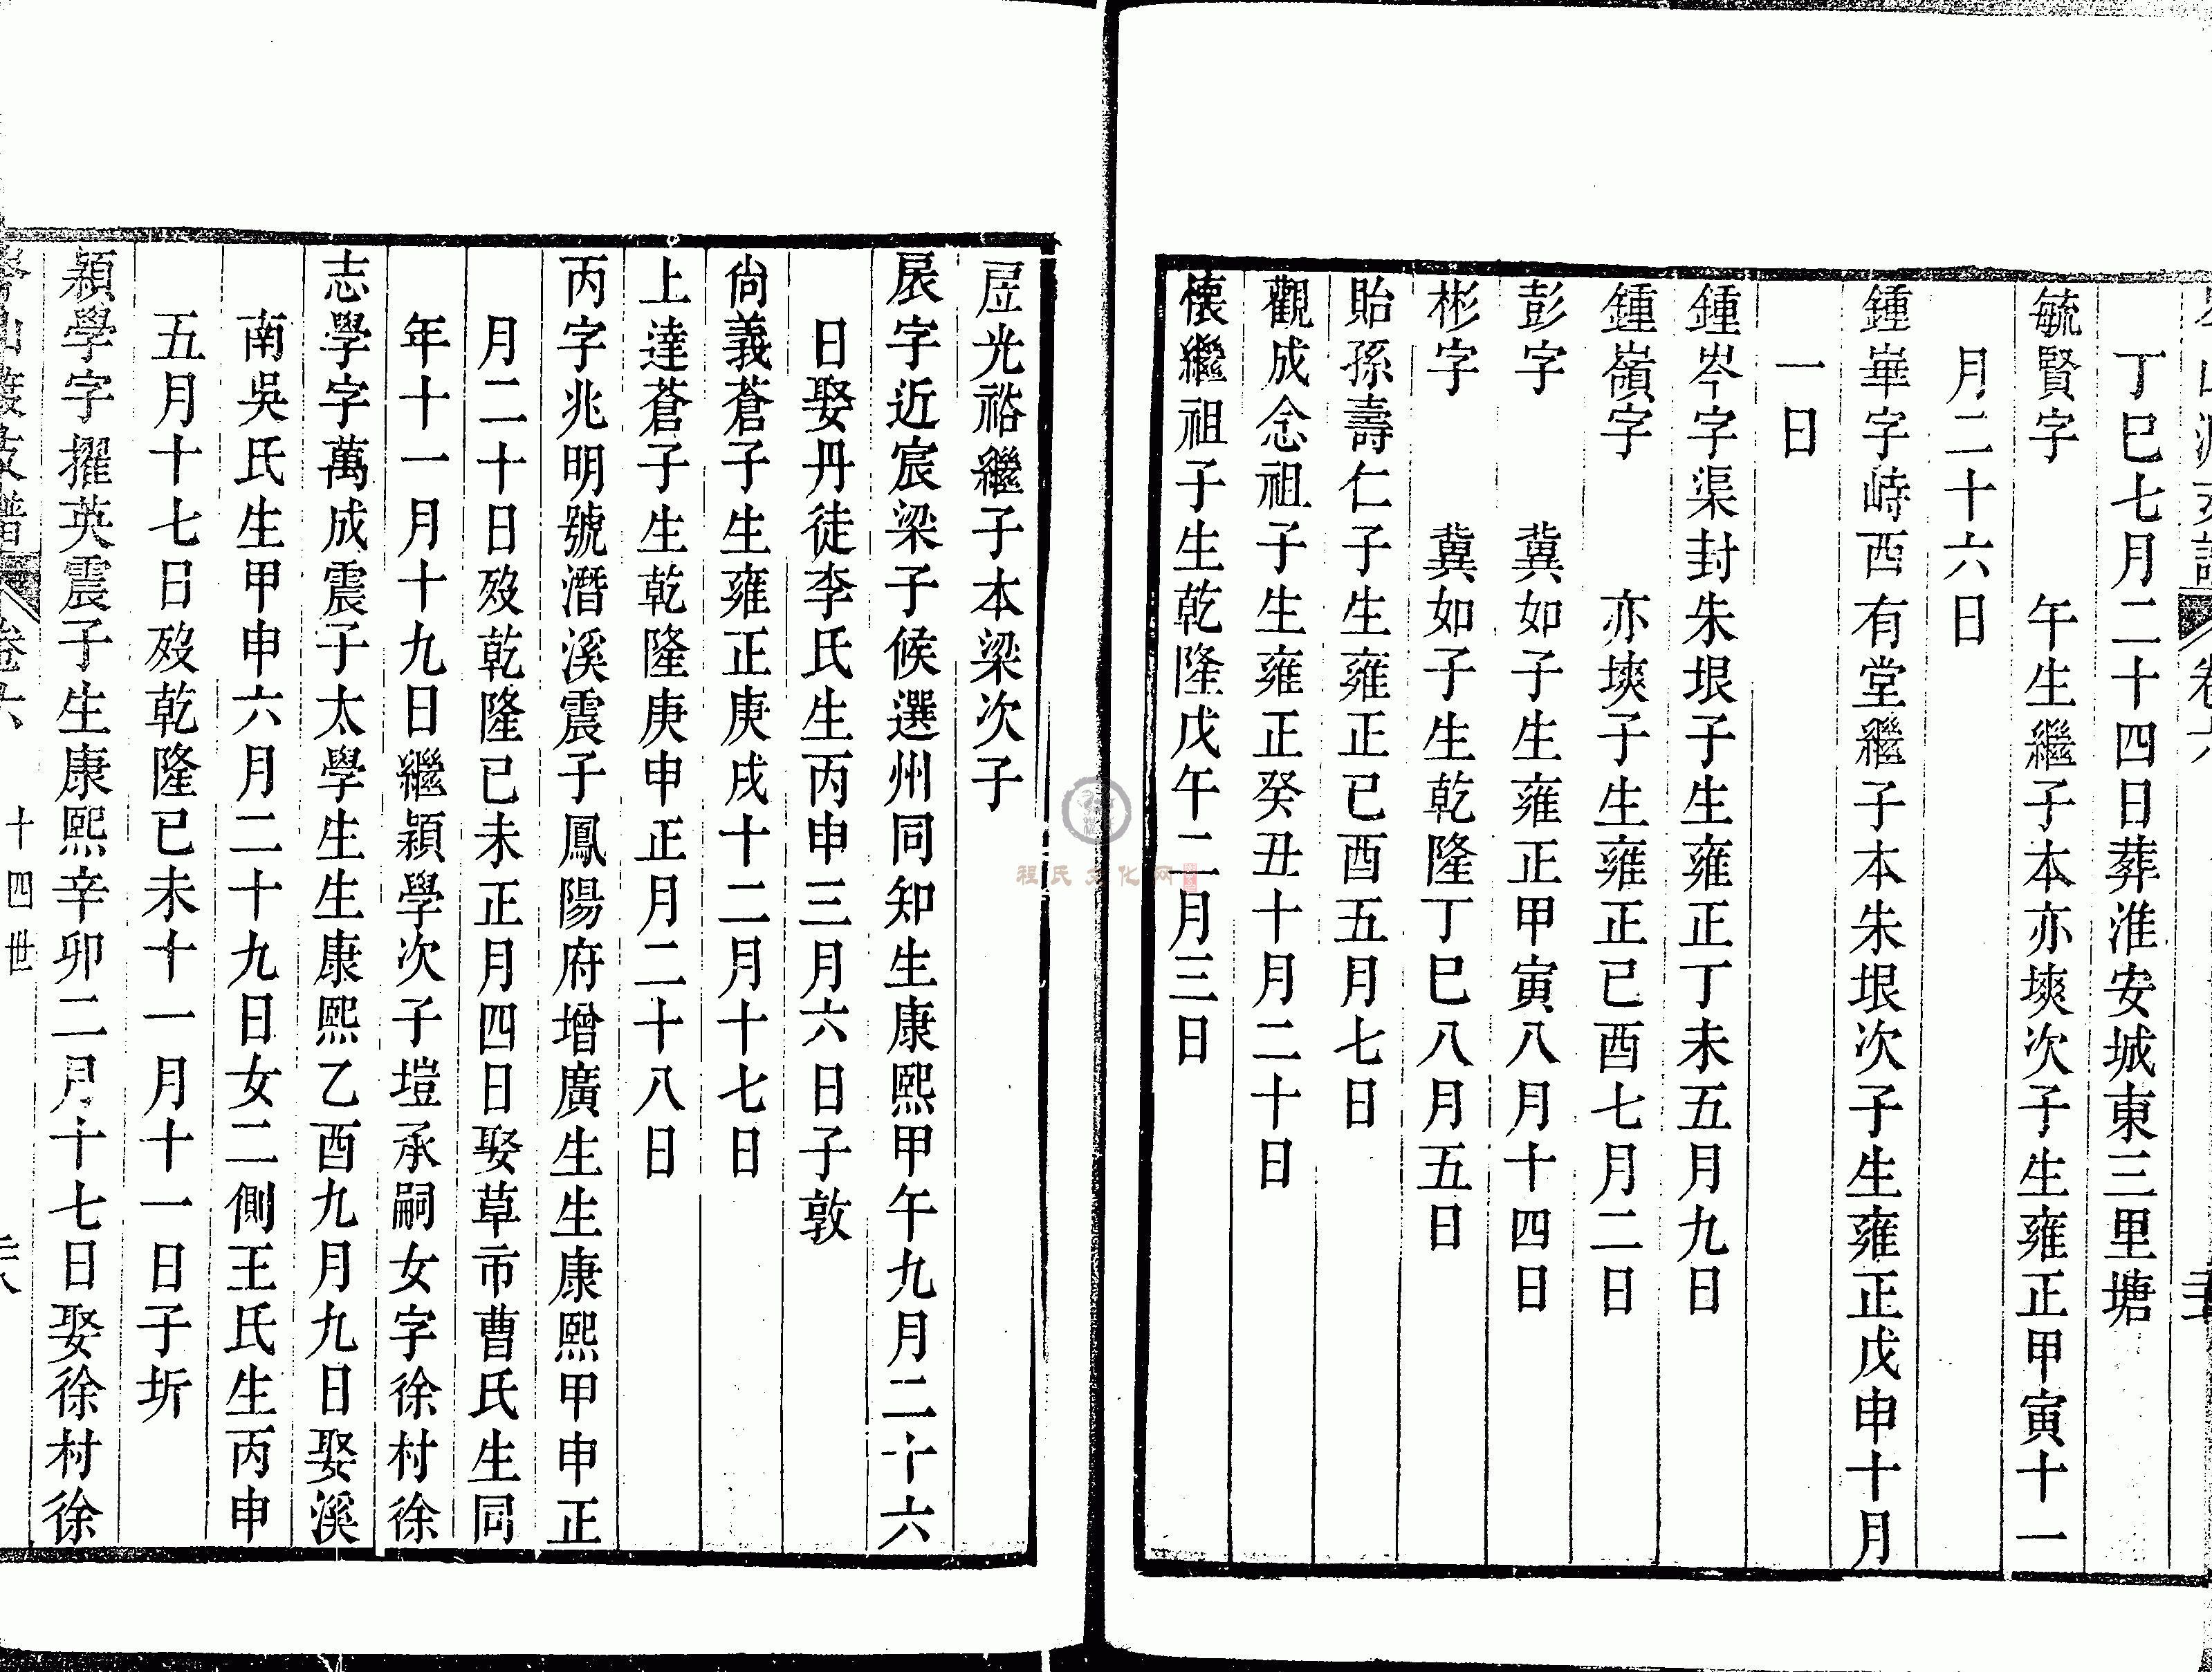 丁巳七月二十四日葬淮安城東三里塘
毓賢字　　午生繼子本亦塽次子生雍正甲寅十一
月二十六日
鍾崋字峙西有堂繼子本朱垠次子生雍正戊申十月
一日
鍾岑字渠封朱垠子生雍正丁未五月九日
鍾嶺字　　亦塽子生雍正己酉七月二日
彭字　　冀如子生雍正甲寅八月十四日
彬字　　冀如子生乾隆丁巳八月五日
貽孫壽仁子生雍正己酉五月七日
觀成念祖子生雍正癸丑十月二十日
懐繼祖子生乾隆戊午二月三日
光裕繼子本梁次子
扆字近宸梁子候選州同知生康熙甲午九月二十六
日娶丹徒李氏生丙申三月六日子敦
尙義蒼子生雍正庚戌十二月十七日
上達蒼子生乾隆庚申正月二十八日
丙字兆明號潛溪震子鳳陽府增廣生生康熙甲申正
月二十日歿乾隆己未正月四日娶草市曹氏生同
年十一月十九日繼穎學次子塏承嗣女字徐村徐
志學字萬成震子太學生生康熙乙酉九月九日娶溪
南吳氏生甲申六月二十九日女二側王氏生丙申
五月十七日歿乾隆己未十一月十一日子圻
穎學字擢英震子生康熙辛卯二月十七日娶徐村徐
卷六　十四世
程氏文化网